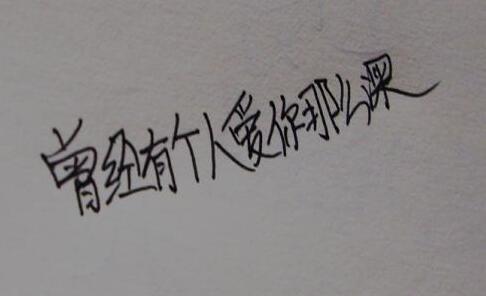 曾经有个人爱你那么深